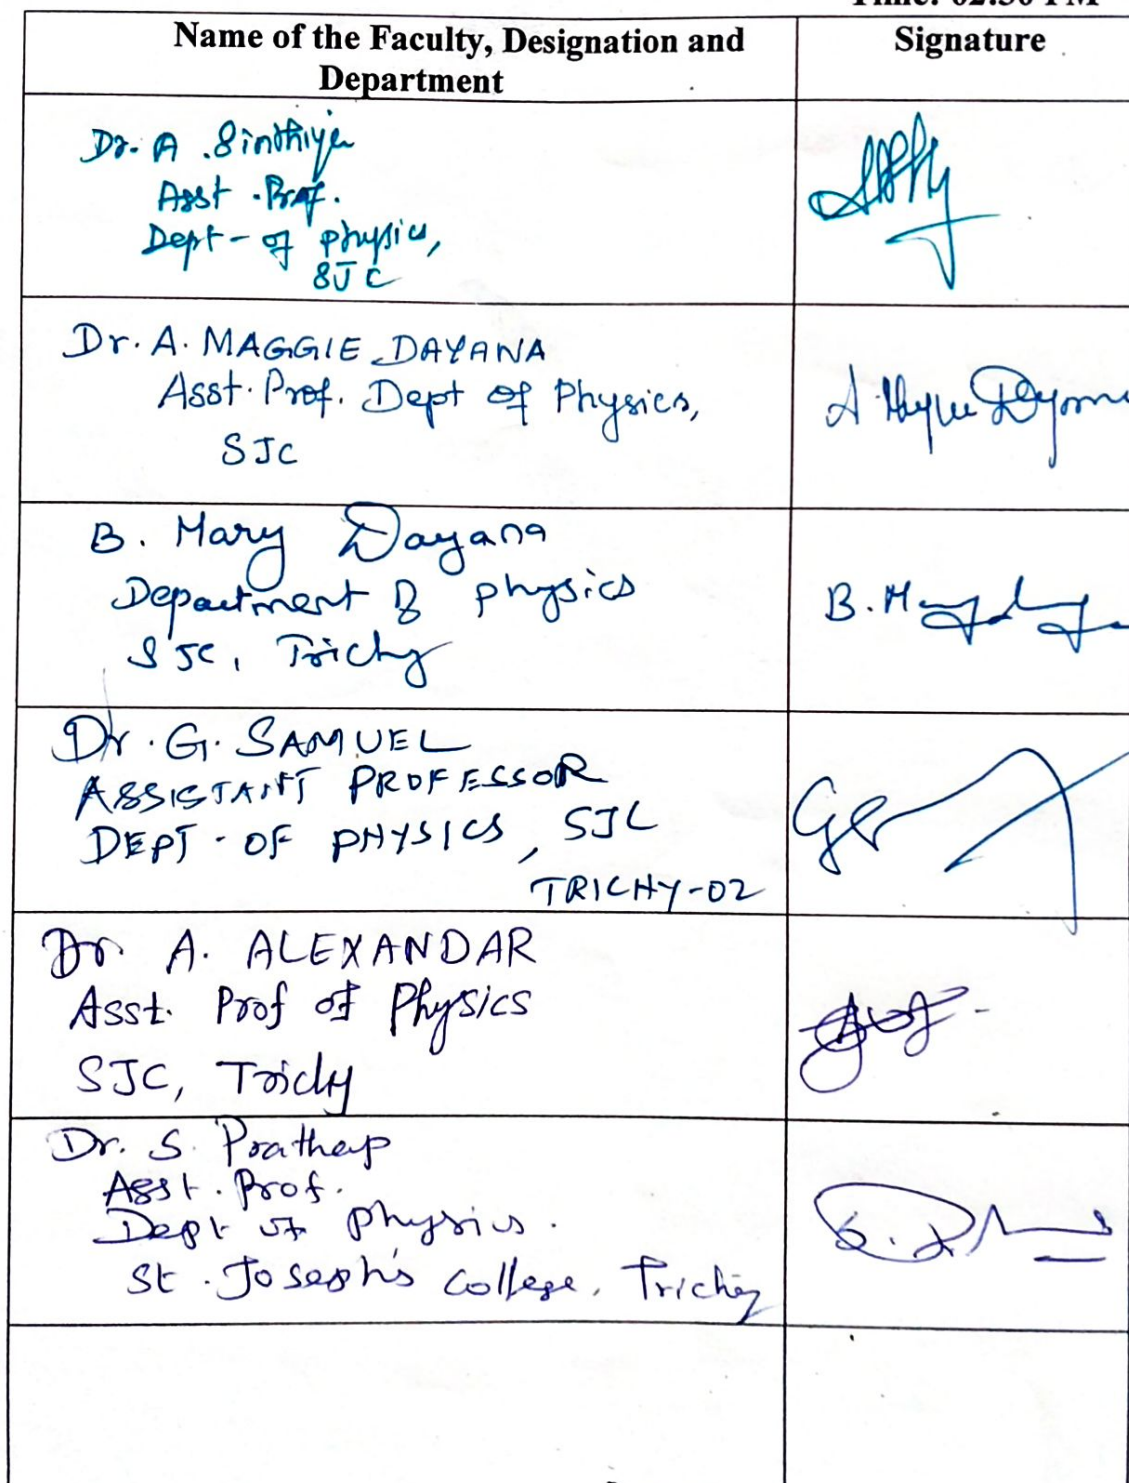 Time: 02:30 PM
Name of the Faculty, Designation and
Department
Signature
Dr. A. Sinthiya
Asst. Prof.
Dept- of physics,
SJC
Dr. A. MAGGIE DAYANA
Asst. Prof. Dept of Physics,
SJC
B. Mary Dayana
Department of physics
SJC, Trichy
B. M
Dr. G. SAMUEL
ASSISTANT PROFESSOR
DEPT. OF PHYSICS, SJC
TRICHY-02
Dr. A. ALEXANDAR
Asst. Prof of Physics
SJC, Trichy
Dr. S. Prathap
Asst. Prof.
Dept of physics.
St. Joseph's College, Trichy